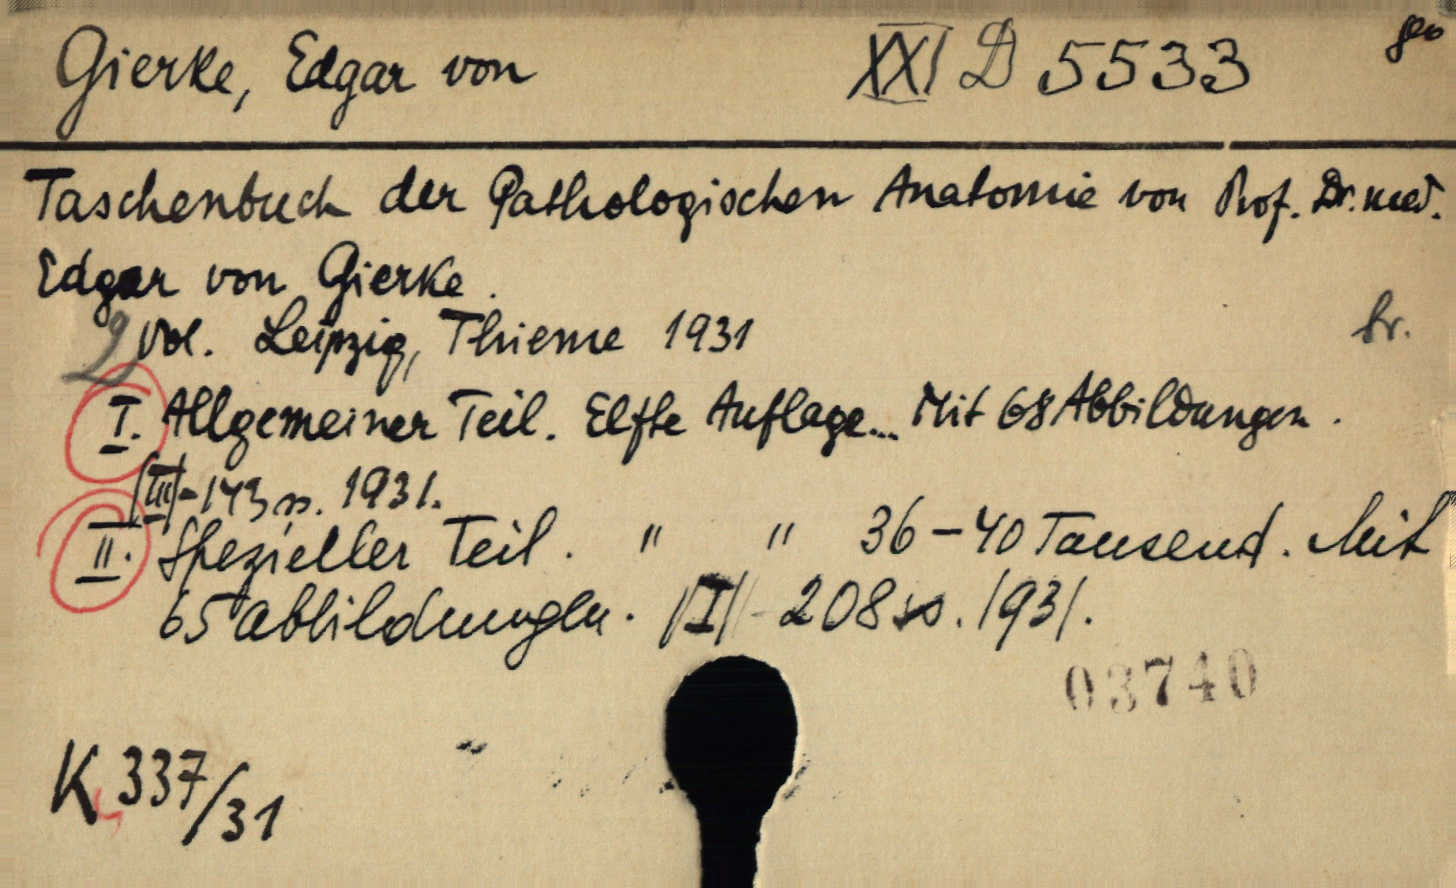 Gierke, Edgar von XXI D 5533 geo
Taschenbuch der Pathologischen Anatomie von Prof. Dr. med.
Edgar von Gierke.
2 vol. Leipzig, Thieme 1931 br.
I. Allgemeiner Teil. Elfte Auflage... Mit 68 Abbildungen.
[III]-143 ss. 1931.
II. Spezieller Teil. " " 36-40 Tausend. Mit
65 Abbildungen. [I]-208 ss. 1931.
03740
K 337/31